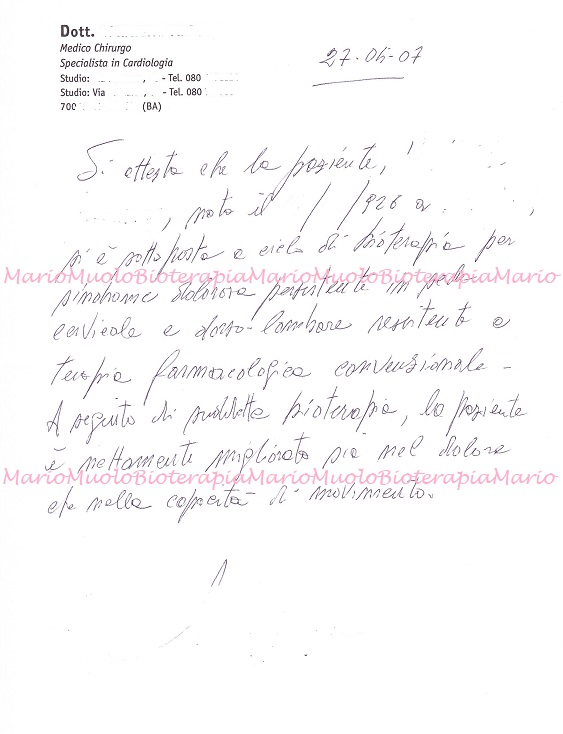 Dott.
Medico Chirurgo
Specialista in Cardiologia
Studio: , - Tel. 080
Studio: Via , - Tel. 080
700 (BA)
27-06-07
Si attesta che la paziente,
, nata il / /926 a ,
si è sottoposta a ciclo di bioterapia per
MarioMuoloBioterapiaMarioMuoloBioterapiaMario
sindrome dolorosa persistente in sede
cervicale e dorso-lombare resistente a
terapia farmacologica convenzionale -
A seguito di suddetta bioterapia, la paziente
è nettamente migliorata sia nel dolore
MarioMuoloBioterapiaMarioMuoloBioterapiaMario
che nella capacità di movimento.